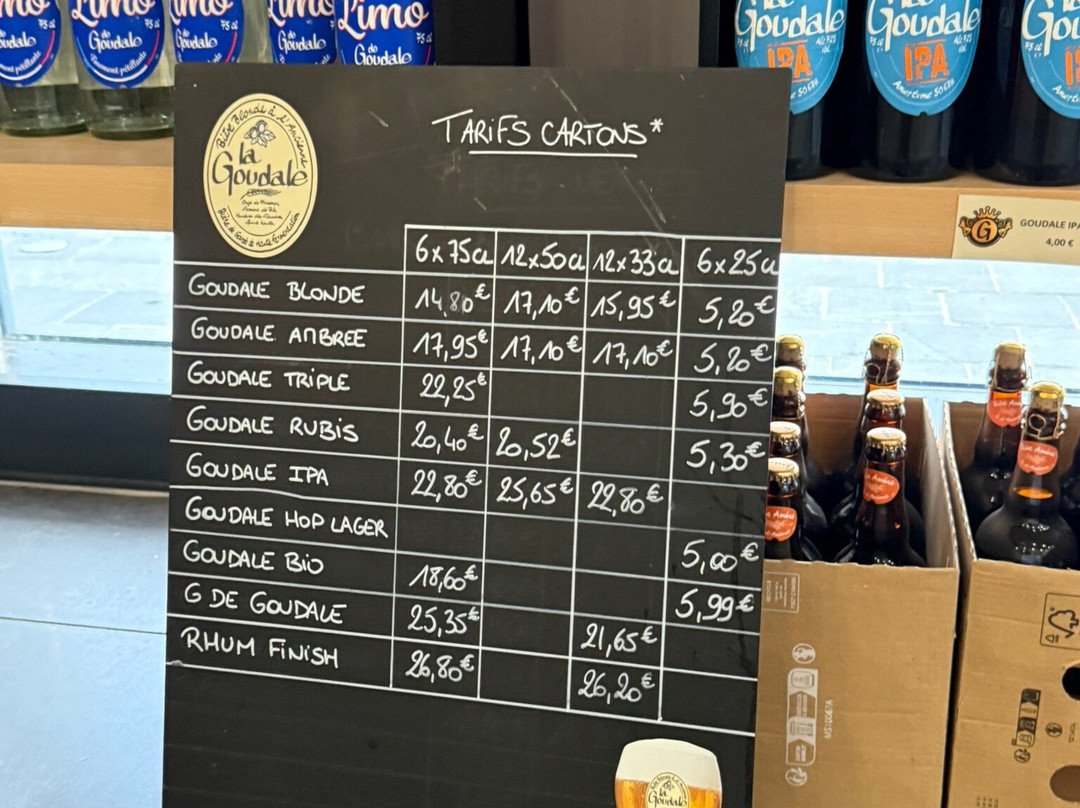 Limo
75 cl
de
Goudale
Limo
de
Goudale
Finement pétillante
Limo
75 cl
de
Goudale
Limo
de
Goudale
Limo
75 cl
de
Goudale
Goudale
IPA
75 cl
Goudale
IPA
75 cl
Amertume 50 EBU
Bière Blonde à l'Ancienne
la
Goudale
Bière de Garde à Haute Fermentation
TARIFS CARTONS*
6x75cl 12x50cl 12x33cl 6x25cl
GOUDALE BLONDE 14,80€ 17,10€ 15,95€ 5,20€
GOUDALE AMBREE 17,95€ 17,10€ 17,10€ 5,20€
GOUDALE TRIPLE 22,25€ 5,90€
GOUDALE RUBIS 20,40€ 20,52€ 5,30€
GOUDALE IPA 22,80€ 25,65€ 22,80€
GOUDALE HOP LAGER 5,00€
GOUDALE BIO 18,60€ 5,99€
G DE GOUDALE 25,35€ 21,65€
RHUM FINISH 26,80€ 26,20€
la
Goudale
G
GOUDALE IPA
4,00 €